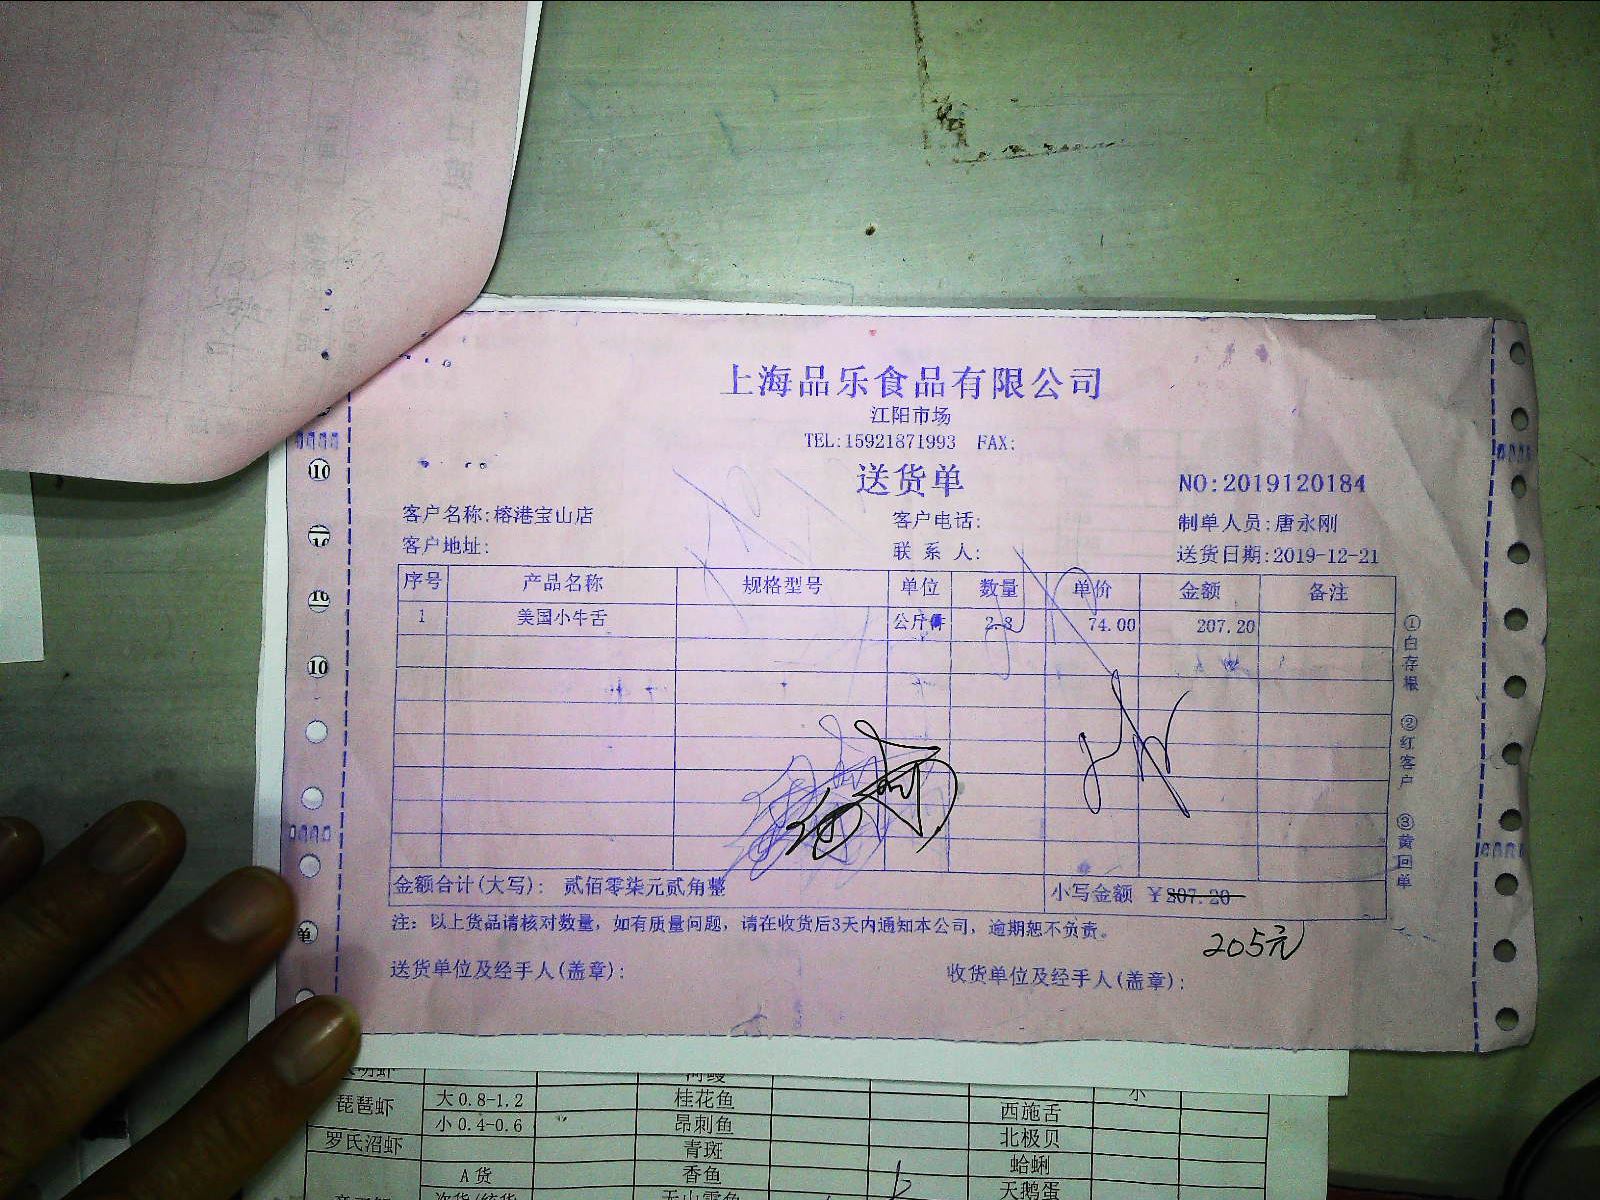 上海品乐食品有限公司
江阳市场
TEL:15921871993 FAX:
送货单
NO:2019120184
客户名称:榕港宝山店 客户电话: 制单人员:唐永刚
客户地址: 联系人: 送货日期:2019-12-21
序号 产品名称 规格型号 单位 数量 单价 金额 备注
1 美国小牛舌 公斤 2.8 74.00 207.20
金额合计(大写): 贰佰零柒元贰角整 小写金额 ¥207.20
注: 以上货品请核对数量, 如有质量问题, 请在收货后3天内通知本公司, 逾期恕不负责。
205元
送货单位及经手人(盖章): 收货单位及经手人(盖章):
①白存根 ②红客户 ③黄回单
琵琶虾 大0.8-1.2 桂花鱼 西施舌
小0.4-0.6 昂刺鱼 北极贝
罗氏沼虾 青斑 蛤蜊
A货 香鱼 天鹅蛋